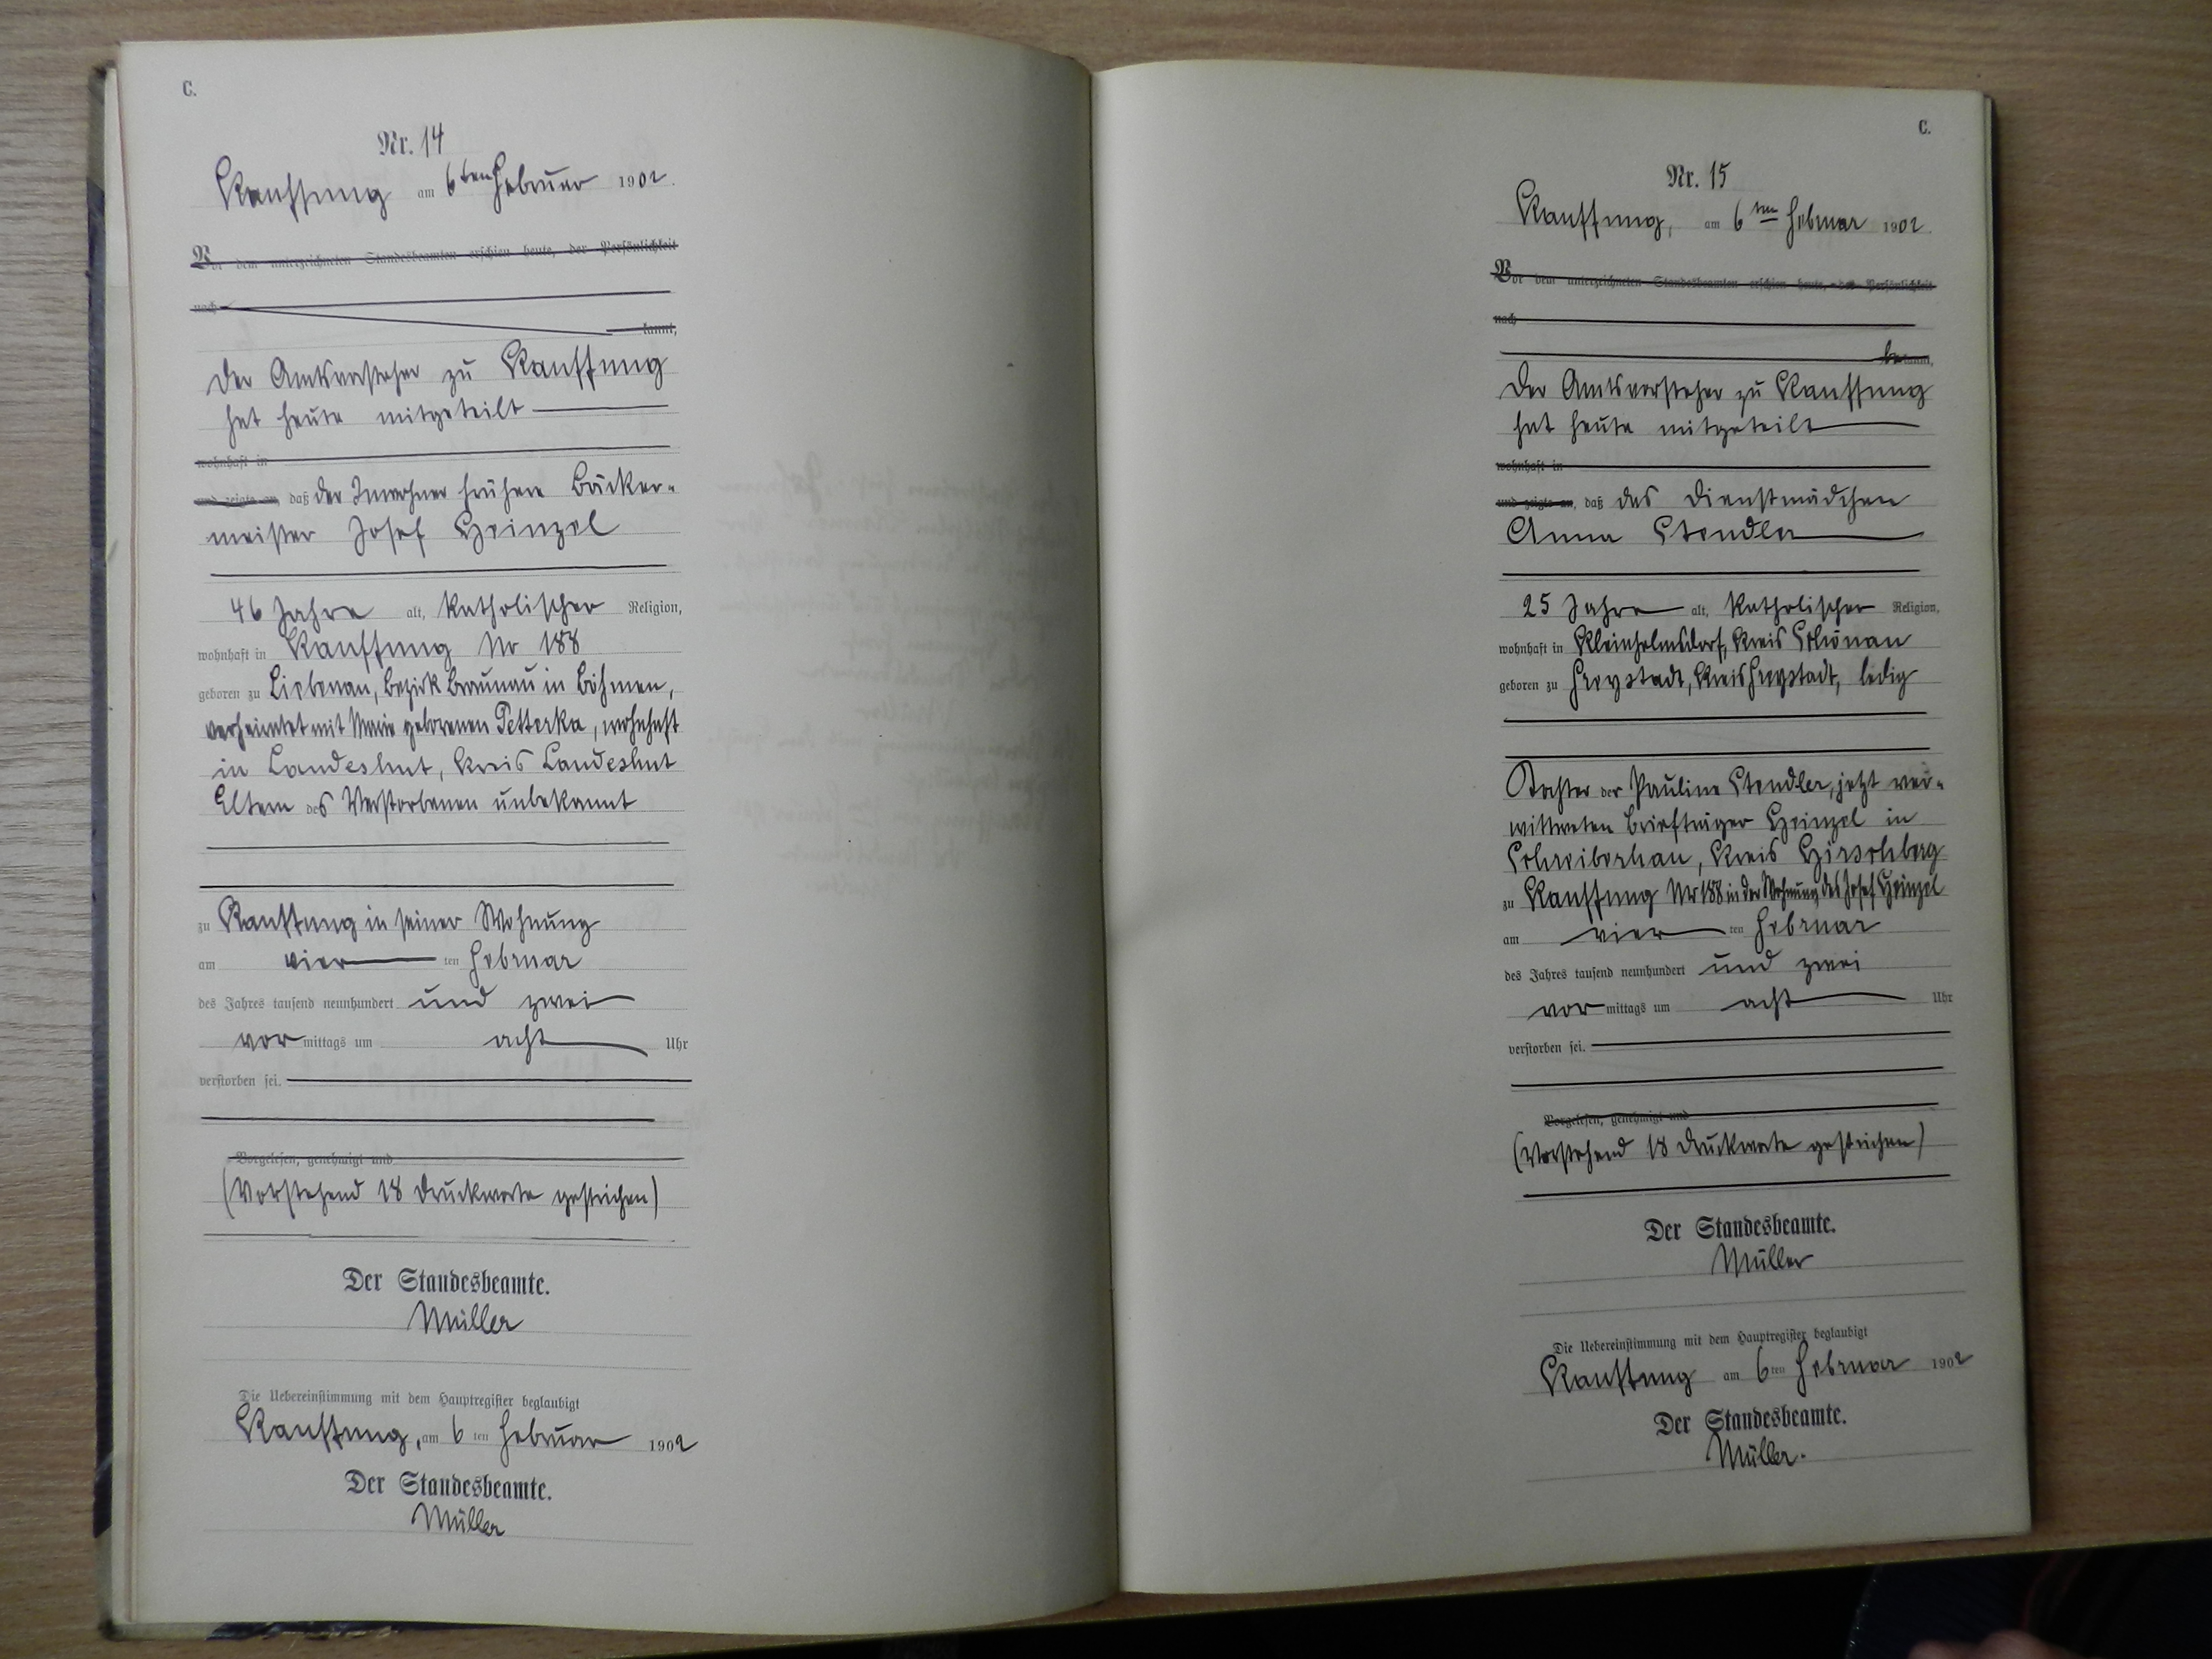 C.
Nr. 14
Kauffung am 6ten Februar 1902.
Vor dem unterzeichneten Standesbeamten erschien heute, der Persönlichkeit
nach
kannt,
Der Amtsvorsteher zu Kauffung
hat heute mitgeteilt
wohnhaft in
und zeigte an, daß der Inwohner frühere Bäcker-
meister Josef Heinzel
46 Jahre alt, katholischer Religion,
wohnhaft in Kauffung Nr 188
geboren zu Liebenau, Bezirk Braunau in Böhmen,
verheiratet mit Marie geborenen Petterka, wohnhaft
in Landeshut, Kreis Landeshut
Eltern des Verstorbenen unbekannt
zu Kauffung in seiner Wohnung
am vier ten Februar
des Jahres tausend neunhundert und zwei
vor mittags um acht Uhr
verstorben sei.
Vorgelesen, genehmigt und
(Vorstehend 18 Druckworte gestrichen)
Der Standesbeamte.
Müller
Die Uebereinstimmung mit dem Hauptregister beglaubigt
Kauffung, am 6 ten Februar 1902
Der Standesbeamte.
Müller
C.
Nr. 15
Kauffung, am 6ten Februar 1902.
Vor dem unterzeichneten Standesbeamten erschien heute, der Persönlichkeit
nach
bekannt,
Der Amtsvorsteher zu Kauffung
hat heute mitgeteilt
wohnhaft in
und zeigte an, daß das Dienstmädchen
Anna Stendler
25 Jahre alt, katholischer Religion,
wohnhaft in Kleinhelmsdorf, Kreis Schönau
geboren zu Freystadt, Kreis Freystadt, ledig
Tochter der Pauline Stendler, jetzt ver-
wittweten Briefträger Heinzel in
Schreiberhau, Kreis Hirschberg
zu Kauffung Nr 188 in der Wohnung des Josef Heinzel
am vier ten Februar
des Jahres tausend neunhundert und zwei
vor mittags um acht Uhr
verstorben sei.
Vorgelesen, genehmigt und
(Vorstehend 18 Druckworte gestrichen)
Der Standesbeamte.
Müller
Die Uebereinstimmung mit dem Hauptregister beglaubigt
Kauffung am 6 ten Februar 1902
Der Standesbeamte.
Müller.